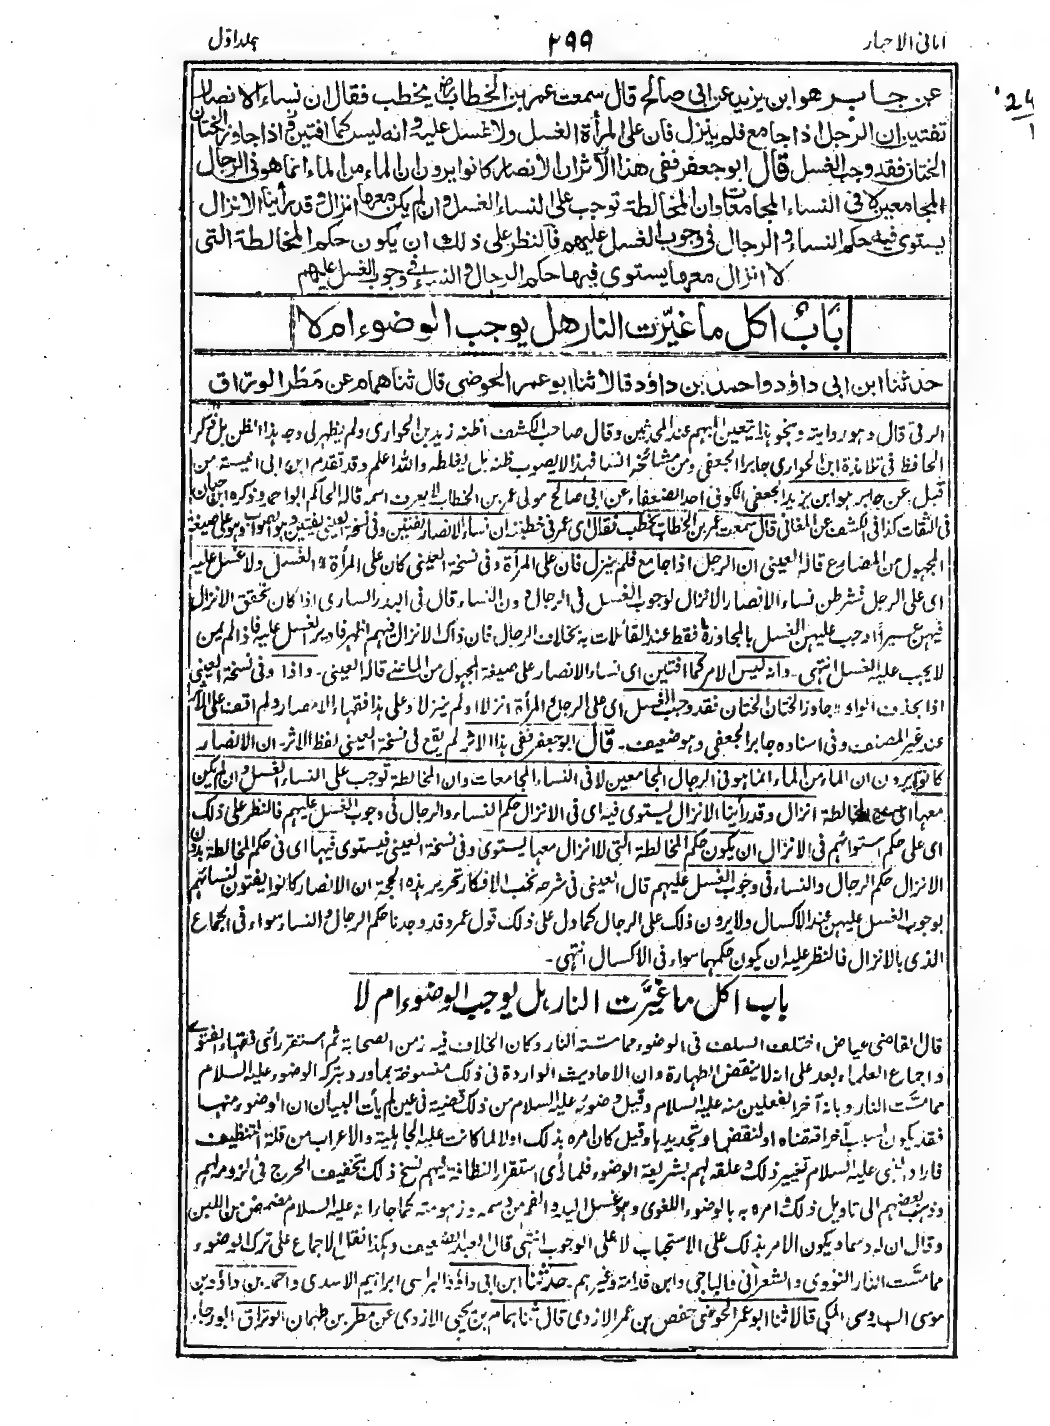 امانی الاحبار ۲۹۹ جلد اوّل
24
1
عن جابر هو ابن یزید عن ابی صالح قال سمعت عمر بن الخطاب یخطب فقال ان نساء الانصار
تفتین ان الرجل اذا جامع فلم ینزل فان علی المرأة الغسل ولا غسل علیه وانه لیس کما افتین اذا جاوز الختان
الختان فقد وجب الغسل قال ابو جعفر ففی هذا الأثر ان الأنصار کانوا یرون ان الماء من الماء انما هو فی الرجال
المجامعین لا فی النساء المجامعات وان المخالطة توجب علی النساء الغسل وان لم یکن معها انزال وقد رأینا الانزال
یستوی فیه حکم النساء والرجال فی وجوب الغسل علیهم فالنظر علی ذلک ان یکون حکم المخالطة التی
لا انزال معها یستوی فیها حکم الرجال والنساء فی وجوب الغسل علیهم
بَابُ اکل ما غیّرت النار هل یوجب الوضوء ام لا
حدثنا ابن ابی داؤد واحمد بن داؤد قالا ثنا ابو عمر الحوضی قال ثنا همام عن مَطَر الوراق
الرقی قال وهو روایته وبنحو هذا یتعین المبهم عند المحدثین وقال صاحب الکشف اظنه زید بن الحواری ولم یظهر لی وجه هذا الظن بل ذکر
الحافظ فی تلامذة ابن الحواری جابرا الجعفی ومن مشائخه انسا فهذا لا یصوب ظنه بل یغلطه والله اعلم وقد تقدم ابن ابی انیسة من
قبل۔ عن جابر هو ابن یزید الجعفی الکوفی احد الضعفاء عن ابی صالح مولی عمر بن الخطاب لا یعرف اسمه قاله الحاکم ابو احمد وذکره ابن حبان
فی الثقات کذا فی الکشف عن المغانی قال سمعت عمر بن الخطاب یخطب فقال ای عمر فی خطبته ان نساء الانصار تفتین وفی نسخة العینی یفتین وهو الصواب وهو علی صیغة
المجهول من المضارع قاله العینی ان الرجل اذا جامع فلم ینزل فان علی المرأة وفی نسخة العینی کان علی المرأة الغسل ولا غسل علیه
ای علی الرجل فشرطن نساء الانصار الانزال لوجوب الغسل فی الرجال دون النساء قال فی البدر الساری اذا کان تحقق الانزال
فیهن عسیرا وجب علیهن الغسل بالمجاوزة فقط عند القائلات به بخلاف الرجال فان ذاک الانزال فیهم اظهر فادیر الغسل علیه فاذا لم یمن
لا یجب علیه الغسل انتهی۔ وانه لیس الامر کما افتین ای نساء الانصار علی صیغة المجهول من الماضی قاله العینی۔ واذا وفی نسخة العینی
اذا بحذف الواو جاوز الختان الختان فقد وجب الغسل ای علی الرجل والمرأة انزلا او لم ینزلا وعلی هذا فقهاء الامصار ولم اقف علی الاثر
عند غیر المصنف وفی اسناده جابر الجعفی وهو ضعیف۔ قال ابو جعفر ففی هذا الاثر لم یقع فی نسخة العینی لفظ الاثر۔ ان الانصار
کانوا یرون ان الماء من الماء انما هو فی الرجال المجامعین لا فی النساء المجامعات وان المخالطة توجب علی النساء الغسل وان لم یکن
معها ای مع المخالطة انزال وقد رأینا الانزال یستوی فیه ای فی الانزال حکم النساء والرجال فی وجوب الغسل علیهم فالنظر علی ذلک
ای علی حکم استوائهم فی الانزال ان یکون حکم المخالطة التی لا انزال معها یستوی وفی نسخة العینی فیستوی فیها ای فی حکم المخالطة بدون
الانزال حکم الرجال والنساء فی وجوب الغسل علیهم قال العینی فی شرحه نخب الافکار تحریر هذه الحجة ان الانصار کانوا یفتون لنسائهم
بوجوب الغسل علیهن عند الاکسال ولا یرون ذلک علی الرجال کما دل علی ذلک قول عمر وقد وجدنا حکم الرجال والنساء سواء فی الجماع
الذی بالانزال فالنظر علیه ان یکون حکمهما سواء فی الاکسال انتهی۔
باب اکل ما غیّرت النار هل یوجب الوضوء ام لا
قال القاضی عیاض اختلف السلف فی الوضوء مما مسّته النار وکان الخلاف فیه زمن الصحابة ثم استقر رأی فقهاء الفتوے
واجماع العلماء بعد علی انه لا ینقض الطهارة وان الاحادیث الواردة فی ذلک منسوخة بما ورد بترکه الوضوء علیه السلام
مما مسّت النار وبانه آخر الفعلین منه علیه السلام وقیل وضوئه علیه السلام من ذلک قضیة فی عین لم یأت البیان ان الوضوء منها
فقد یکون لسبب آخر اقتضاه او لنقض او تجدید اوقیل کان امره بذلک اولا لما کانت علیه الجاهلیة والاعراب من قلة التنظیف
فاراد النبی علیه السلام تغییر ذلک وعلقه لهم بشریعة الوضوء فلما رأی استقرار النظافة فیهم نسخ ذلک بتخفیف الحرج فی لزومه لهم
وذهب بعضهم الی تاویل ذلک وامره به بالوضوء اللغوی وهو غسل الید والفم من دسمه وزهومته کما جاء انه علیه السلام مضمض من اللبن
وقال ان له دسما ویکون الامر بذلک علی الاستحباب لا علی الوجوب انتهی قال العبد الضعیف وهکذا نقل الاجماع علی ترک الوضوء
مما مسّت النار النووی والشعرانی والباجی وابن قدامة وغیرهم۔ حدثنا ابن ابی داؤد البرلسی ابراهیم الاسدی واحمد بن داؤد بن
موسی السدوسی المکی قالا ثنا ابو عمر الحوضی حفص بن عمر الازدی قال ثنا همام بن یحیی الازدی عن مطر بن طهمان الوراق ابو رجاء